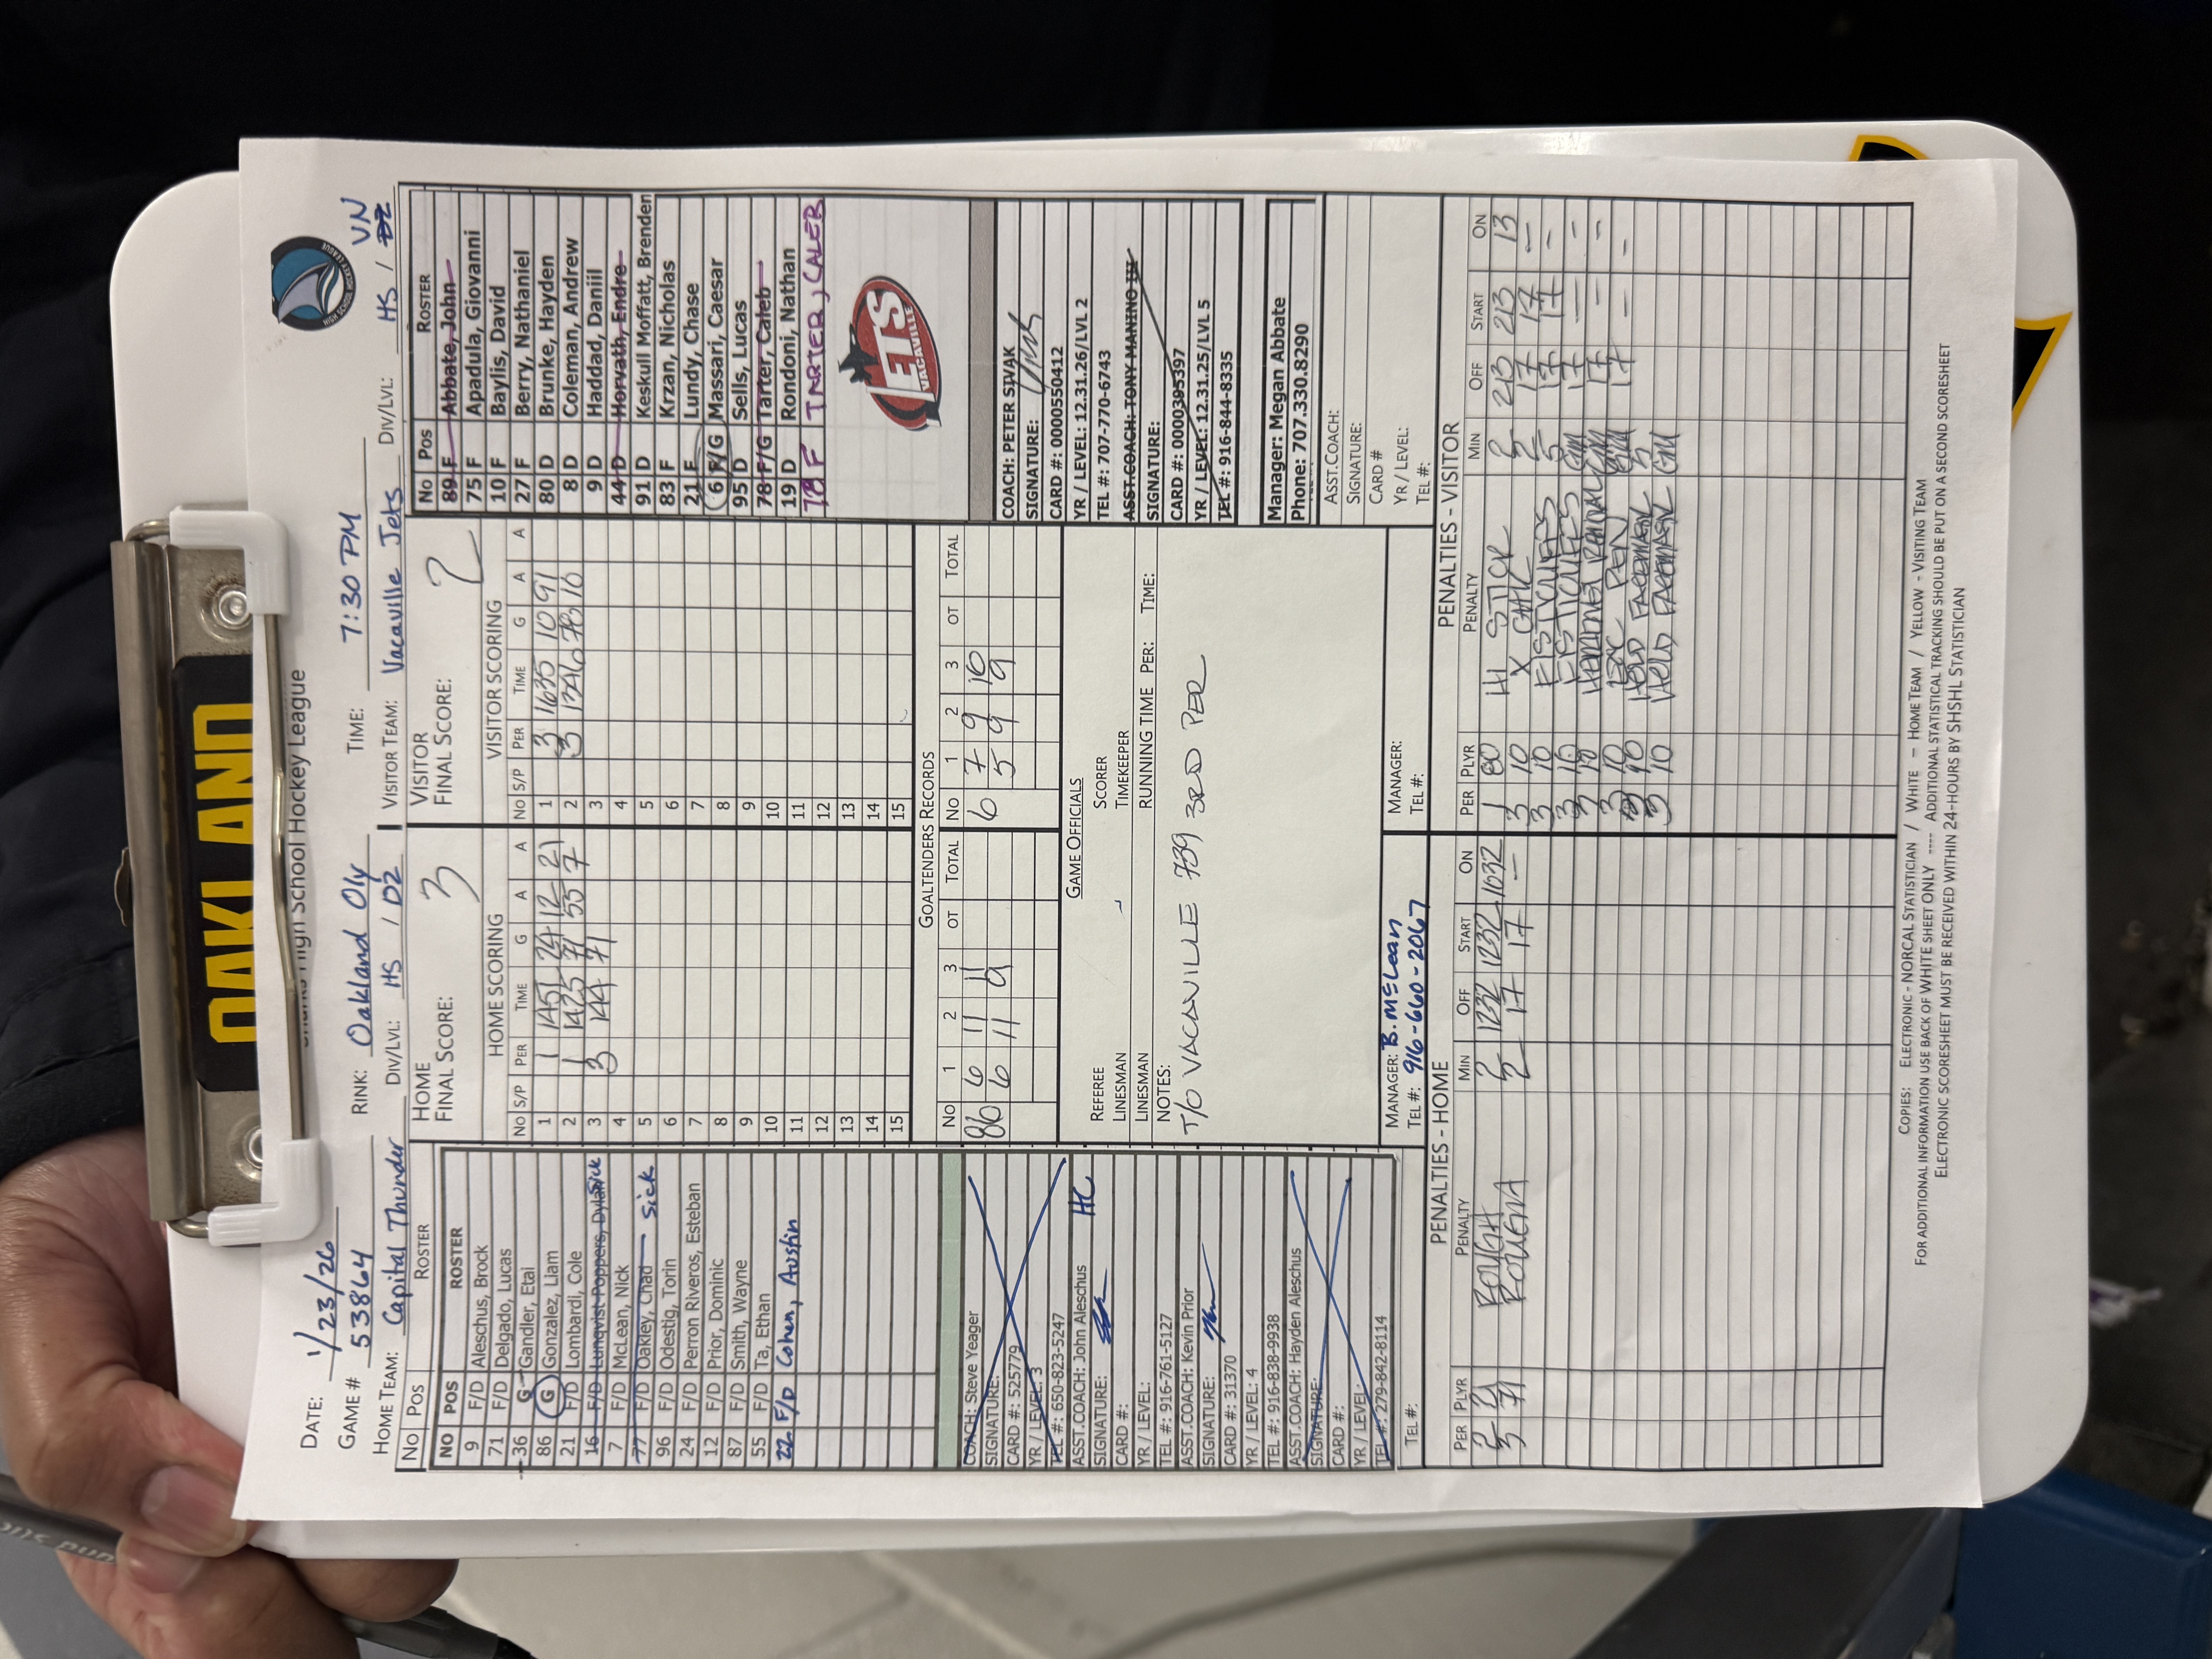 OAKLAND
Sharks High School Hockey League
HIGH SCHOOL HOCKEY LEAGUE
DATE: 1/23/26 RINK: Oakland Oly TIME: 7:30 PM
GAME # 53864
HOME TEAM: Capital Thunder DIV/LVL: HS / D2 VISITOR TEAM: Vacaville Jets DIV/LVL: HS / VN
No Pos ROSTER
NO POS ROSTER
9 F/D Aleschus, Brock
71 F/D Delgado, Lucas
36 G Gandler, Etai
86 G Gonzalez, Liam
21 F/D Lombardi, Cole
16 F/D Lunqvist Poppers, Dylan Sick
7 F/D McLean, Nick
77 F/D Oakley, Chad Sick
96 F/D Odestig, Torin
24 F/D Perron Riveros, Esteban
12 F/D Prior, Dominic
87 F/D Smith, Wayne
55 F/D Ta, Ethan
22 F/D Cohen, Austin
COACH: Steve Yeager
SIGNATURE:
CARD #: 525779
YR / LEVEL: 3
TEL #: 650-823-5247
ASST.COACH: John Aleschus HC
SIGNATURE:
CARD #:
YR / LEVEL:
TEL #: 916-761-5127
ASST.COACH: Kevin Prior
SIGNATURE:
CARD #: 31370
YR / LEVEL: 4
TEL #: 916-838-9938
ASST.COACH: Hayden Aleschus
SIGNATURE:
CARD #:
YR / LEVEL:
TEL #: 279-842-8114
TEL #:
HOME
FINAL SCORE: 3
HOME SCORING
No S/P PER TIME G A A
1 1 1451 24 12 21
2 1 1425 71 55 7
3 3 144 71
4
5
6
7
8
9
10
11
12
13
14
15
VISITOR
FINAL SCORE: 2
VISITOR SCORING
No S/P PER TIME G A A
1 3 1635 10 91
2 3 1246 78 10
3
4
5
6
7
8
9
10
11
12
13
14
15
GOALTENDERS RECORDS
No 1 2 3 OT TOTAL No 1 2 3 OT TOTAL
86 6 11 11 6 7 9 10
6 11 9 5 9 9
GAME OFFICIALS
REFEREE SCORER
LINESMAN TIMEKEEPER
LINESMAN RUNNING TIME PER: TIME:
NOTES:
T/O VACAVILLE 739 3RD PER
MANAGER: B. McLean MANAGER:
TEL #: 916-660-2067 TEL #:
No Pos ROSTER
89 F Abbate, John
75 F Apadula, Giovanni
10 F Baylis, David
27 F Berry, Nathaniel
80 D Brunke, Hayden
8 D Coleman, Andrew
9 D Haddad, Daniil
44 D Horvath, Endre
91 D Keskull Moffatt, Brenden
83 F Krzan, Nicholas
21 F Lundy, Chase
6 F/G Massari, Caesar
95 D Sells, Lucas
78 F/G Tarter, Caleb
19 D Rondoni, Nathan
78 F TARTER, CALEB
JETS
VACAVILLE
COACH: PETER SIVAK
SIGNATURE:
CARD #: 0000550412
YR / LEVEL: 12.31.26/LVL 2
TEL #: 707-770-6743
ASST.COACH: TONY MANINO III
SIGNATURE:
CARD #: 0000395397
YR / LEVEL: 12.31.25/LVL 5
TEL #: 916-844-8335
Manager: Megan Abbate
Phone: 707.330.8290
ASST.COACH:
SIGNATURE:
CARD #
YR / LEVEL:
TEL #:
PENALTIES - HOME
PER PLYR PENALTY MIN OFF START ON
2 21 ROUGH 2 1232 1232 1032
3 71 2 17 17 —
PENALTIES - VISITOR
PER PLYR PENALTY MIN OFF START ON
1 80 HI STICK 2 213 213 13
3 10 X CHECK 2 17 17 —
3 10 FISTICUFFS 5 17 17 —
3 10 FISTICUFFS GM 17 — —
3 10 17 — —
3 10 17 — —
3 10 HELD FACEMASK 5
3 10 HELD FACEMASK GM
COPIES: ELECTRONIC - NORCAL STATISTICIAN / WHITE – HOME TEAM / YELLOW - VISITING TEAM
FOR ADDITIONAL INFORMATION USE BACK OF WHITE SHEET ONLY ---- ADDITIONAL STATISTICAL TRACKING SHOULD BE PUT ON A SECOND SCORESHEET
ELECTRONIC SCORESHEET MUST BE RECEIVED WITHIN 24-HOURS BY SHSHL STATISTICIAN